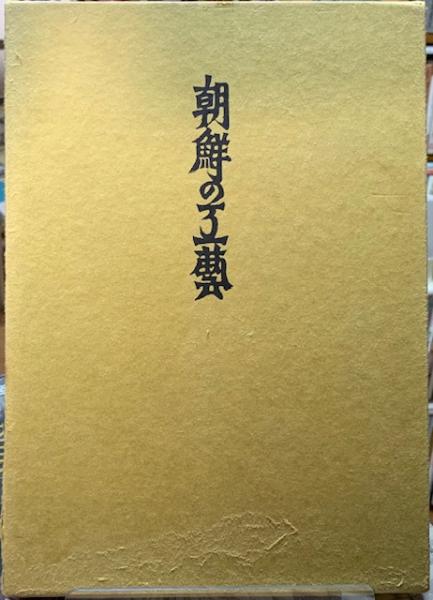 朝鮮の工藝